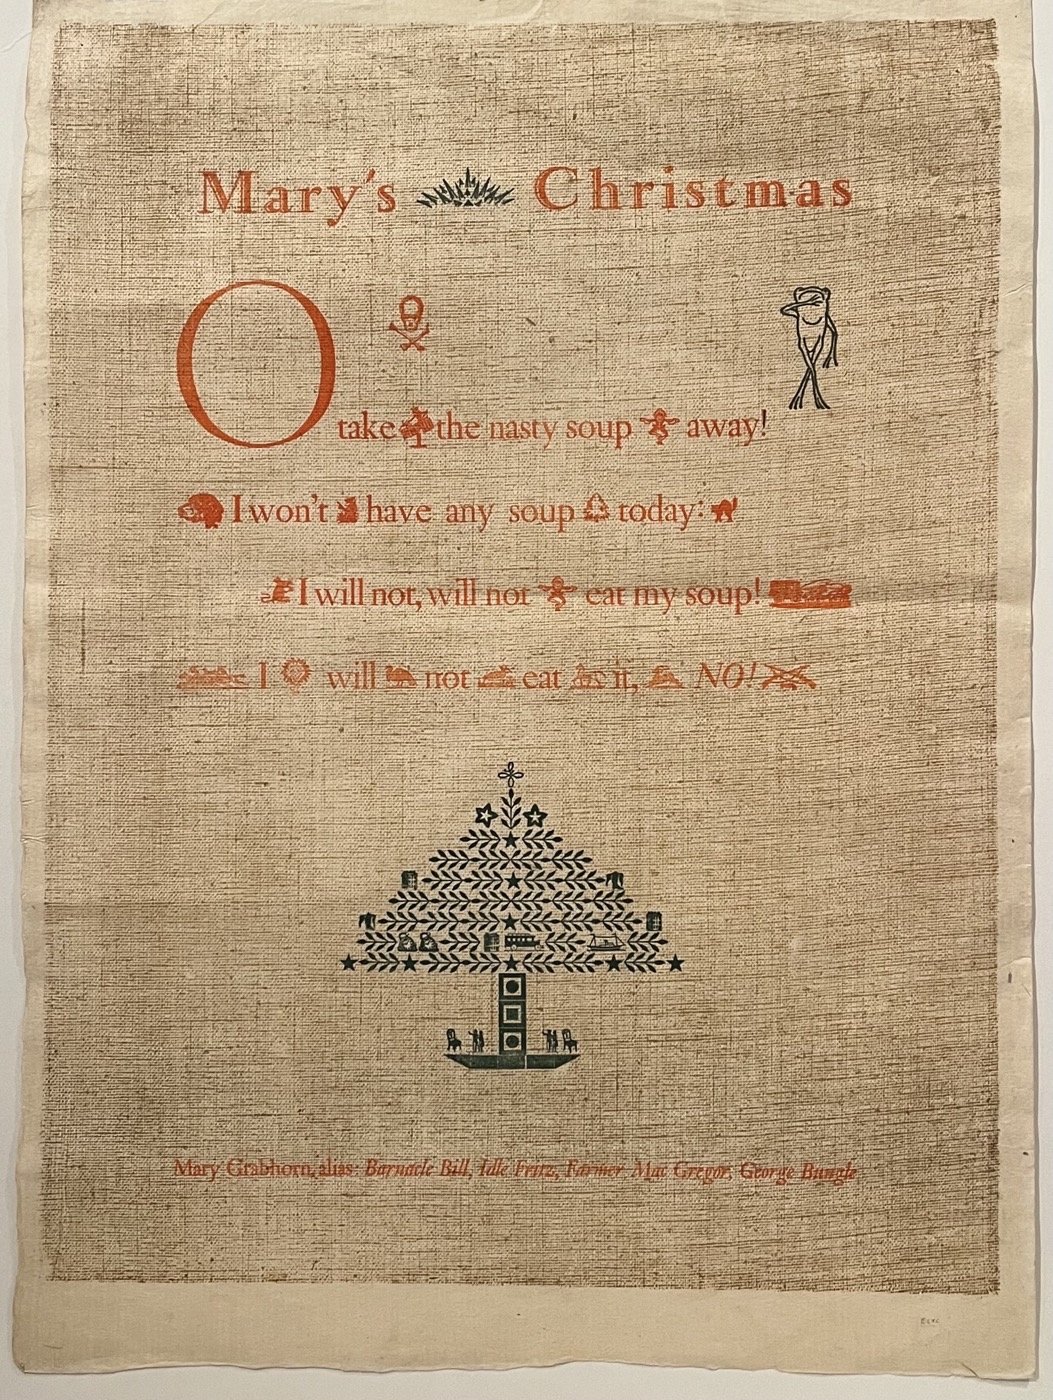 Mary's Christmas
O take the nasty soup away!
I won't have any soup today:
I will not, will not eat my soup!
I will not eat it, NO!
Mary Grabhorn, alias: Barnacle Bill, Idle Fritz, Farmer Mac Gregor, George Bungle